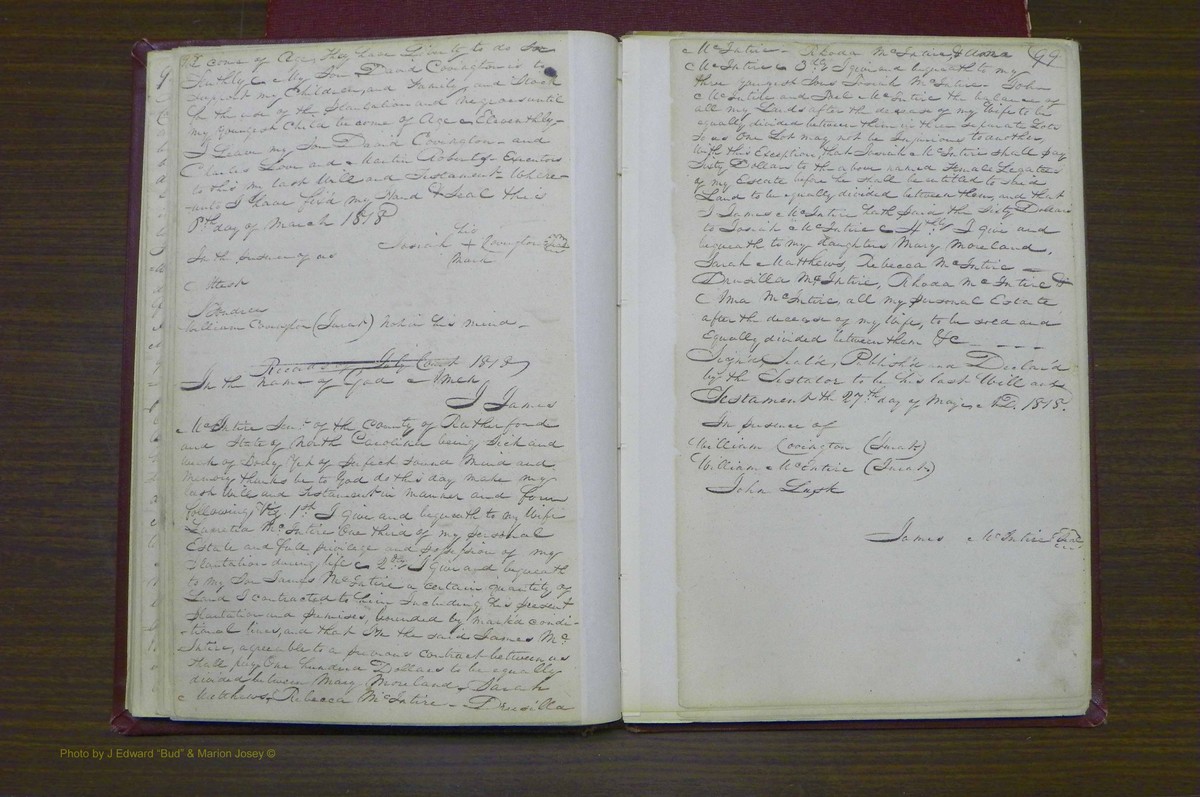 come of Age, they have Liberty to do so
my Son David Covington is to
Support my Children, and Family, and Stock
by the use of the Plantation and Negroes until
my youngest Child become of Age Eleventhly-
I Leave my Son David Covington- and
Charles Love and Martin Roberts- Executors
to this my last Will and Testament Where-
-unto I have fix'd my Hand & Seal this
8th day of March 1818
In the presence of us
his
Josiah + Covington Seal
Mark
Attest
William Covington (Jurat)
Records July Court 1818
In the name of God Amen
I James
McIntire Senr. of the County of Rutherford
and State of North Carolina being Sick and
weak of Body Yet of perfect Sound Mind and
Memory thanks be to God do this day make my
last Will and Testament in manner and form
following, Viz. 1st I give and bequeath to my Wife
Lucretia McIntire One third of my personal
Estate and full privilage and possession of my
Plantation during life 2dly I Give and bequeath
to my Son James McIntire a certain quantity of
Land I contracted to him Including his present
plantation and premises, bounded by mark'd condi-
-tional lines, and that the said James Mc
Intire, agreeable to a previous contract between us
Shall pay One hundred Dollars to be equally
divided between Mary Moreland, Sarah
Matthews, Rebecca McIntire - Drusilla
99
McIntire - Rhoda McIntire, & Anna
McIntire 3rdly I give and bequeath to my
three youngest Sons Josiah McIntire - John
McIntire and McIntire the balance of
all my Lands after the decease of my Wife to be
equally divided between them in three Separate Lots
so as One Lot may not be Injurious to another,
With this Exception, that Josiah McIntire shall pay
Sixty Dollars to the above named Female Legatees
of my Estate before he shall be entitled to his
Land to be equally divided between them, and that
I James McIntire hath paid the Sixty Dollars
to Josiah McIntire 4thly I Give and
bequeath to my daughters Mary Moreland,
Sarah Matthews, Rebecca McIntire -
Drusilla McIntire, Rhoda McIntire &
Anna McIntire, all my personal Estate
after the decease of my Wife, to be sold and
Equally divided between them &c - - - -
Sign'd Seal'd, Publish'd and Declar'd
by the Testator to be his last Will and
Testament the 27th day of May A.D. 1818.
In presence of
William Covington (Jurat)
William McIntire (Jurat)
John Lusk
James McIntire Seal
Photo by J Edward "Bud" & Marion Josey ©